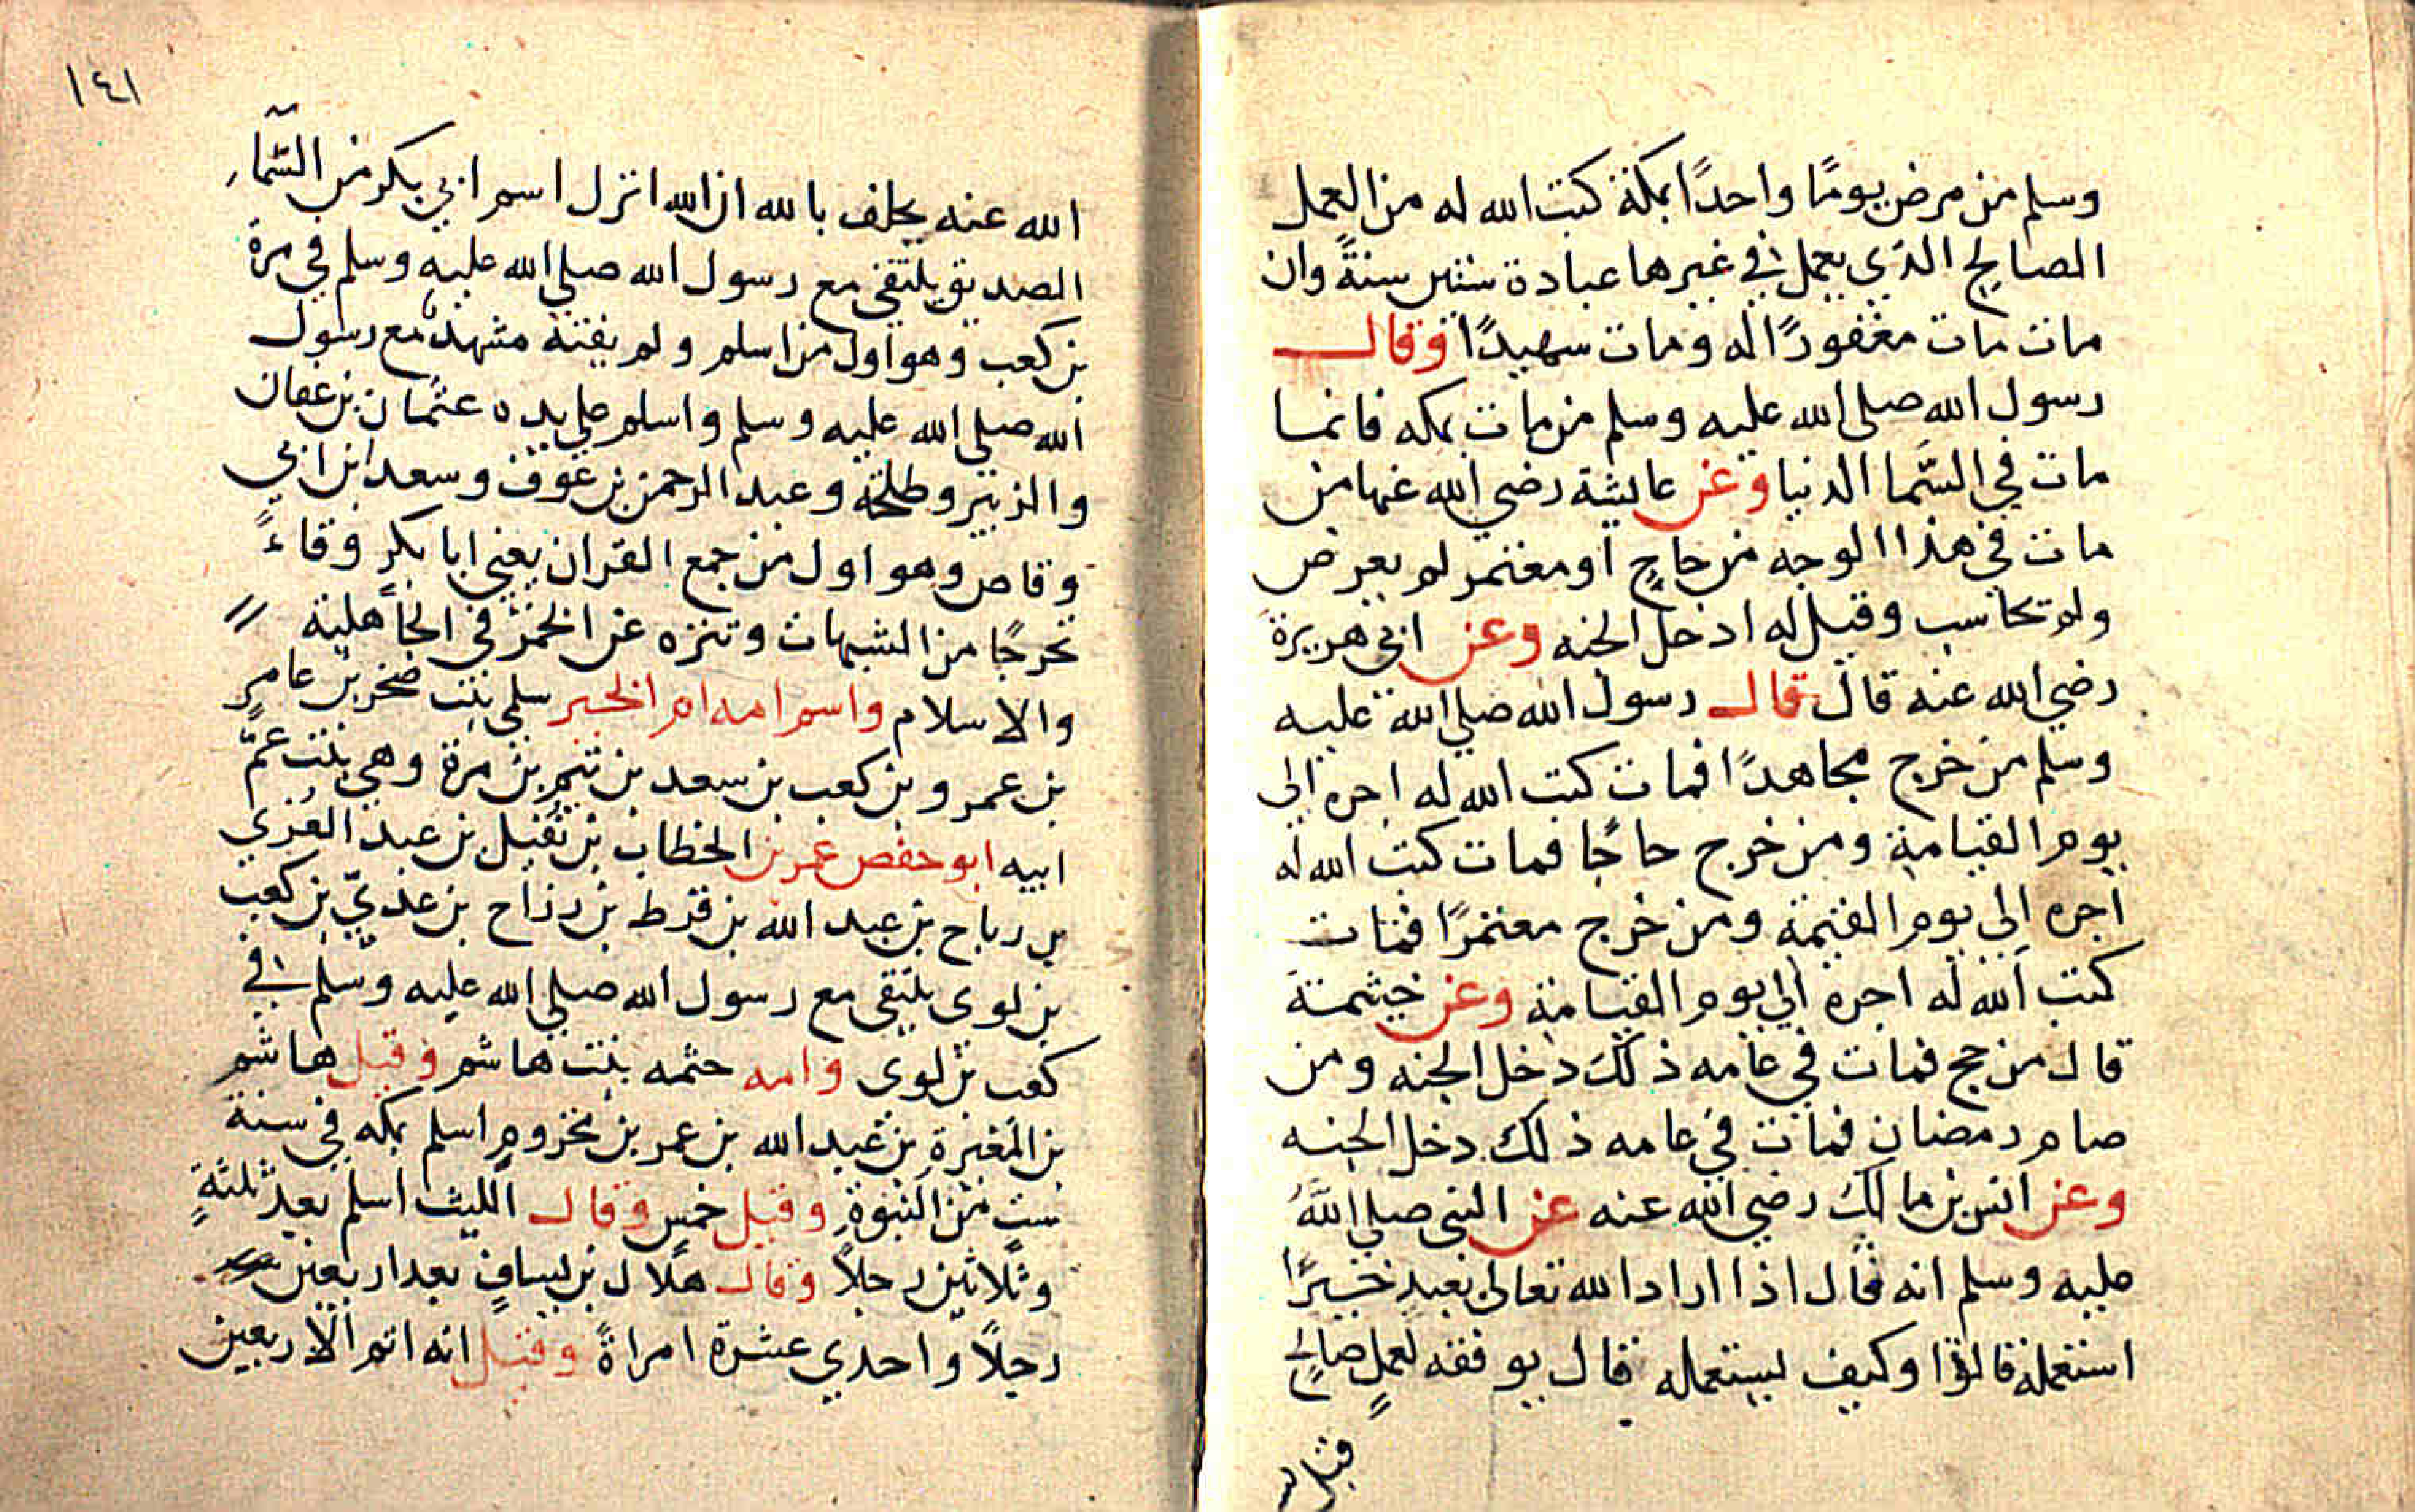 وسلم من مرض يومًا واحدًا بمكة كتب الله له من العمل
الصالح الذي يعمل في غيرها عبادة ستين سنةً وان
مات مات مغفورًا له ومات شهيدًا وقال
رسول الله صلى الله عليه وسلم من مات بمكه فانما
مات في السَّما الدنيا وعن عايشة رضي الله عنها من
مات في هذا الوجه من حاجٍ او معتمر لم يعرض
ولم يحاسب وقيل له ادخل الجنه وعن ابي هريرة
رضي الله عنه قال قال رسول الله صلي الله عليه
وسلم من خرج مجاهدًا فمات كتب الله له اجره الى
يوم القيامة ومن خرج حاجًا فمات كتب الله له
اجره الى يوم القيمة ومن خرج معتمرًا فمات
كتب الله له اجره الي يوم القيامة وعن خيثمة
قال من حج فمات في عامه ذلك دخل الجنه ومن
صام رمضان فمات في عامه ذلك دخل الجنه
وعن انس بن مالك رضي الله عنه عن النبي صلي اللَّه
عليه وسلم انه قال اذا اراد الله تعالى بعبدٍ خيرًا
استعمله قالوا وكيف يستعمله قال يوفقه لعملٍ صالحٍ
قبل
١٤١
الله عنه يحلف بالله ان الله انزل اسم ابي بكر من السَّماء
الصديق يلتقي مع رسول الله صلي الله عليه وسلم في مرة
بن كعب وهو اول من اسلم ولم يفته مشهد مع رسول
الله صلي الله عليه وسلم واسلم علي يده عثمان بن عفان
والزبير وطلحة وعبد الرحمن بن عوف وسعد ابن ابي
وقاص وهو اول من جمع القران يعني ابا بكر وقاءً
تحرجًا من الشبهات وتنزه عن الخمر في الجاهلية
والاسلام واسم امه ام الخير سلمي بنت صخر بن عامرٍ
بن عمرو بن كعب بن سعد بن تيم بن مرة وهي بنت عمّ
ابيه ابو حفص عمر بن الخطاب بن نُفيل بن عبد العُزي
بن رباح بن عبد الله بن قرط بن رزاح بن عديّ بن كعب
بن لوى يلتقى مع رسول الله صلي الله عليه وسلم في
كعب بن لوى وامه حثمه بنت هاشم وقيل هاشم
بن المغيرة بن عبد الله بن عمر بن مخزومٍ اسلم بمكه في سنة
ستٍ من النبوة وقيل خمس وقال الليث اسلم بعد ثلثةٍ
وثلاثين رجلاً وقال هلال بن يسافٍ بعد اربعين
رجلاً واحدي عشرة امراةً وقيل انه اتم الاربعين